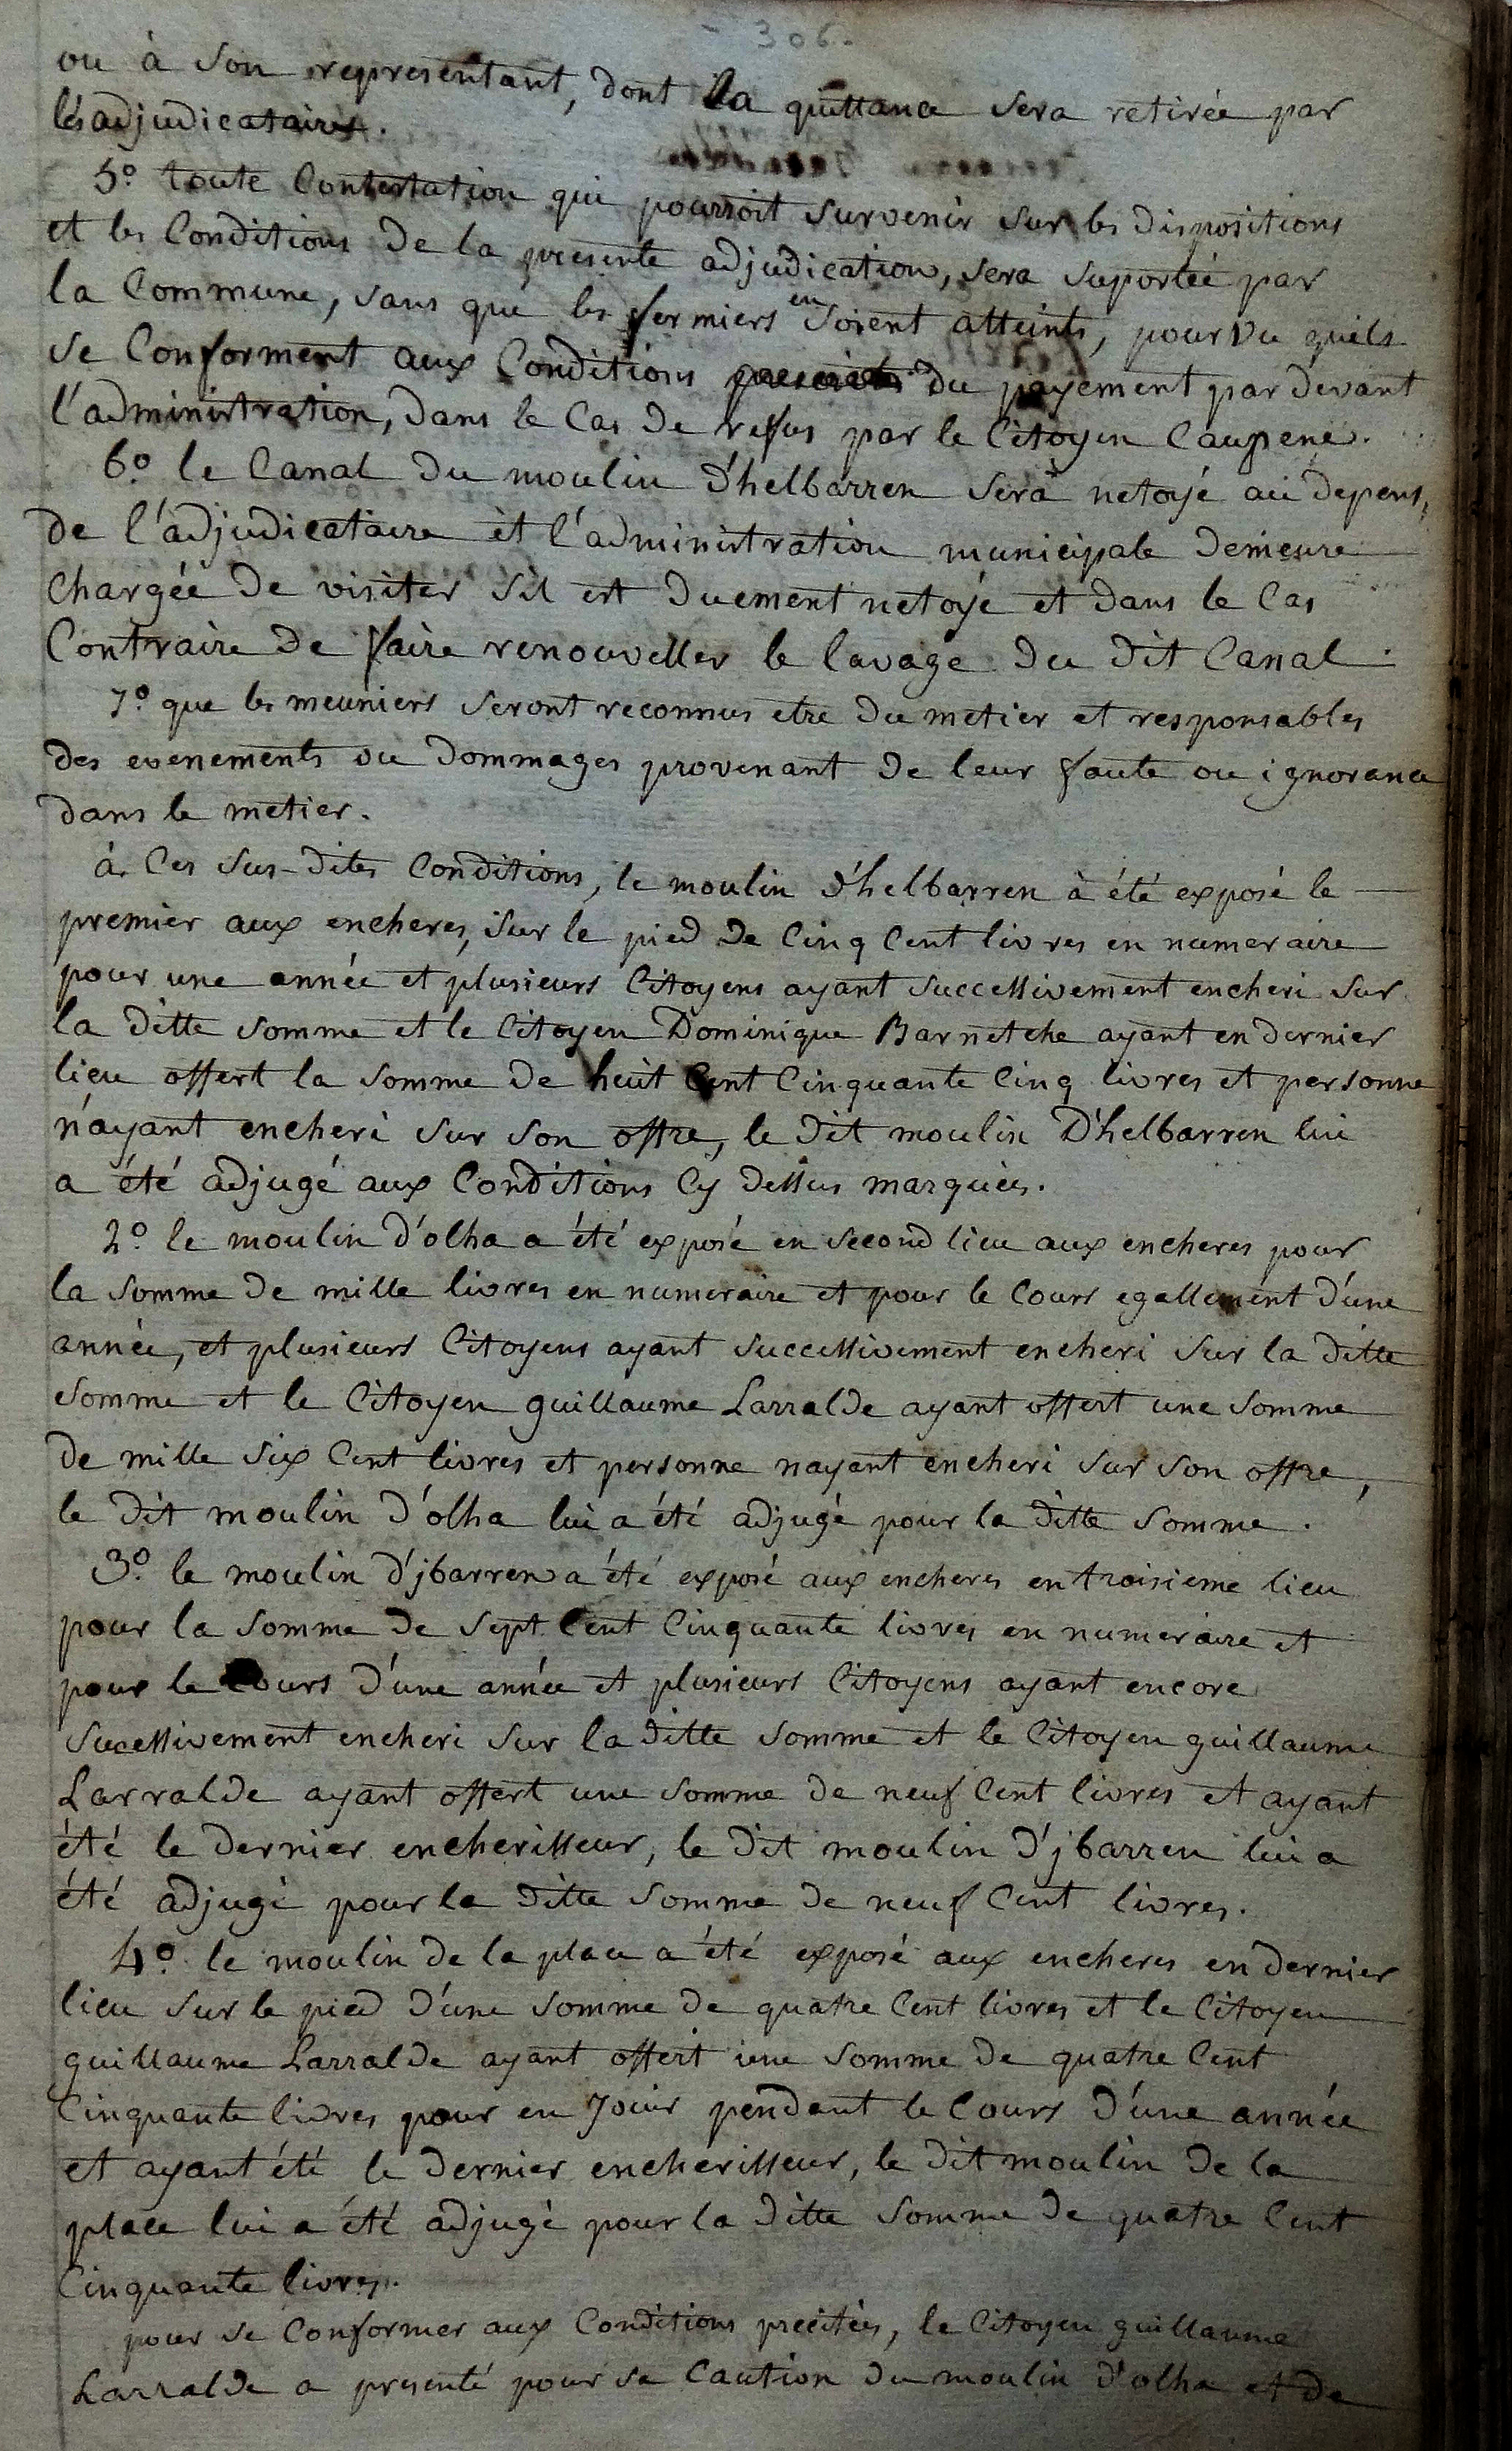 - 306 -
ou à son representant, dont la quittance sera retirée par
les adjudicataires.
5.º toute Contestation qui pourroit survenir sur les dispositions
et les Conditions de la presente adjudication, sera suportée par
la Commune, sans que les fermiers en soient atteints, pourvu quils
se Conforment aux Conditions du payement par devant
l'administration, dans le Cas de refus par le Citoyen Caupene.
6.º le Canal du moulin d'helbarren sera netoyé au depens,
de l'adjudicataire et l'administration municipale demeure
Chargée de visiter s'il est duement netoyé et dans le Cas
Contraire de faire renouveller le lavage du dit Canal.
7.º que les meuniers seront reconnus etre du metier et responsables
des evenements ou dommages provenant de leur faute ou ignorance
dans le metier.
à Ces sus-dites Conditions, le moulin d'helbarren à été exposé le
premier aux encheres, sur le pied de Cinq Cent livres en numeraire
pour une année et plusieurs Citoyens ayant successivement encheri sur
la ditte somme et le Citoyen Dominique Barnetche ayant en dernier
lieu offert la somme de huit Cent Cinquante Cinq livres et personne
n'ayant encheri sur son offre, le dit moulin D'helbarren lui
a été adjugé aux Conditions Cy dessus marquées.
2.º le moulin d'olha a été exposé en second lieu aux encheres pour
la somme de mille livres en numeraire et pour le Cours egallement d'une
année, et plusieurs Citoyens ayant successivement encheri sur la ditte
somme et le Citoyen guillaume Larralde ayant offert une somme
de mille six Cent livres et personne nayant encheri sur son offre,
le dit moulin d'olha lui a été adjugé pour la ditte somme.
3.º le moulin d'jbarren a été exposé aux encheres en troisieme lieu
pour la somme de sept Cent Cinquante livres en numeraire et
pour le Cours d'une année et plusieurs Citoyens ayant encore
sucessivement encheri sur la ditte somme et le Citoyen guillaume
Larralde ayant offert une somme de neuf Cent livres et ayant
été le dernier encherisseur, le dit moulin d'jbarren lui a
été adjugé pour la ditte somme de neuf Cent livres.
4.º le moulin de la place a été exposé aux encheres en dernier
lieu sur le pied d'une somme de quatre Cent livres et le Citoyen
guillaume Larralde ayant offert une somme de quatre Cent
Cinquante livres pour en Jouir pendant le Cours d'une année
et ayant été le dernier encherisseur, le dit moulin de la
place lui a été adjugé pour la ditte somme de quatre Cent
Cinquante livres.
pour se Conformer aux Conditions precitées, le Citoyen guillaume
Larralde a presenté pour sa Caution du moulin d'olha et de